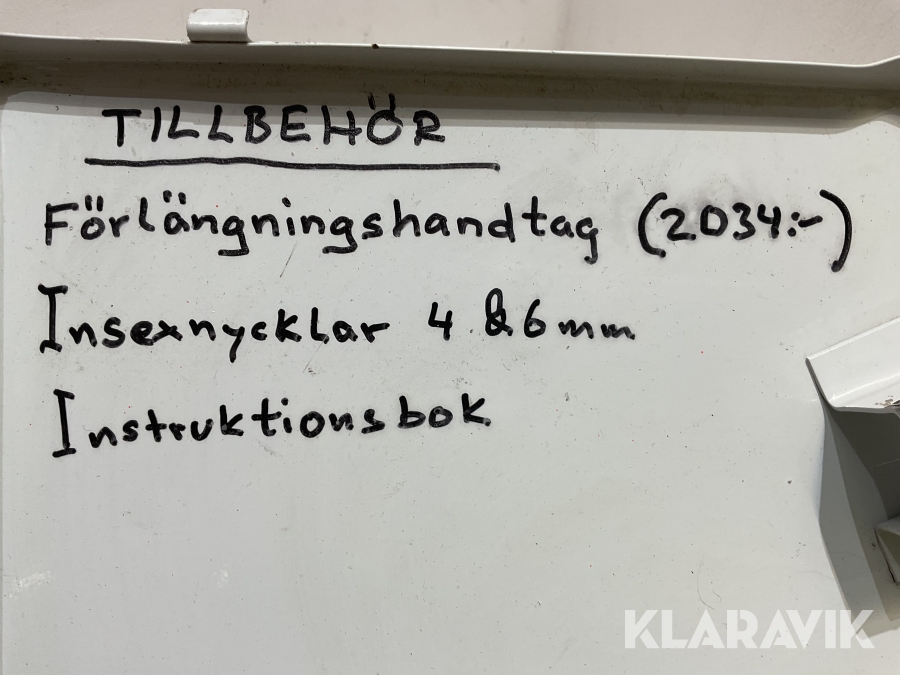 TILLBEHÖR
Förlängningshandtag (2034:-)
Insexnycklar 4 & 6 mm
Instruktionsbok
KLARAVIK